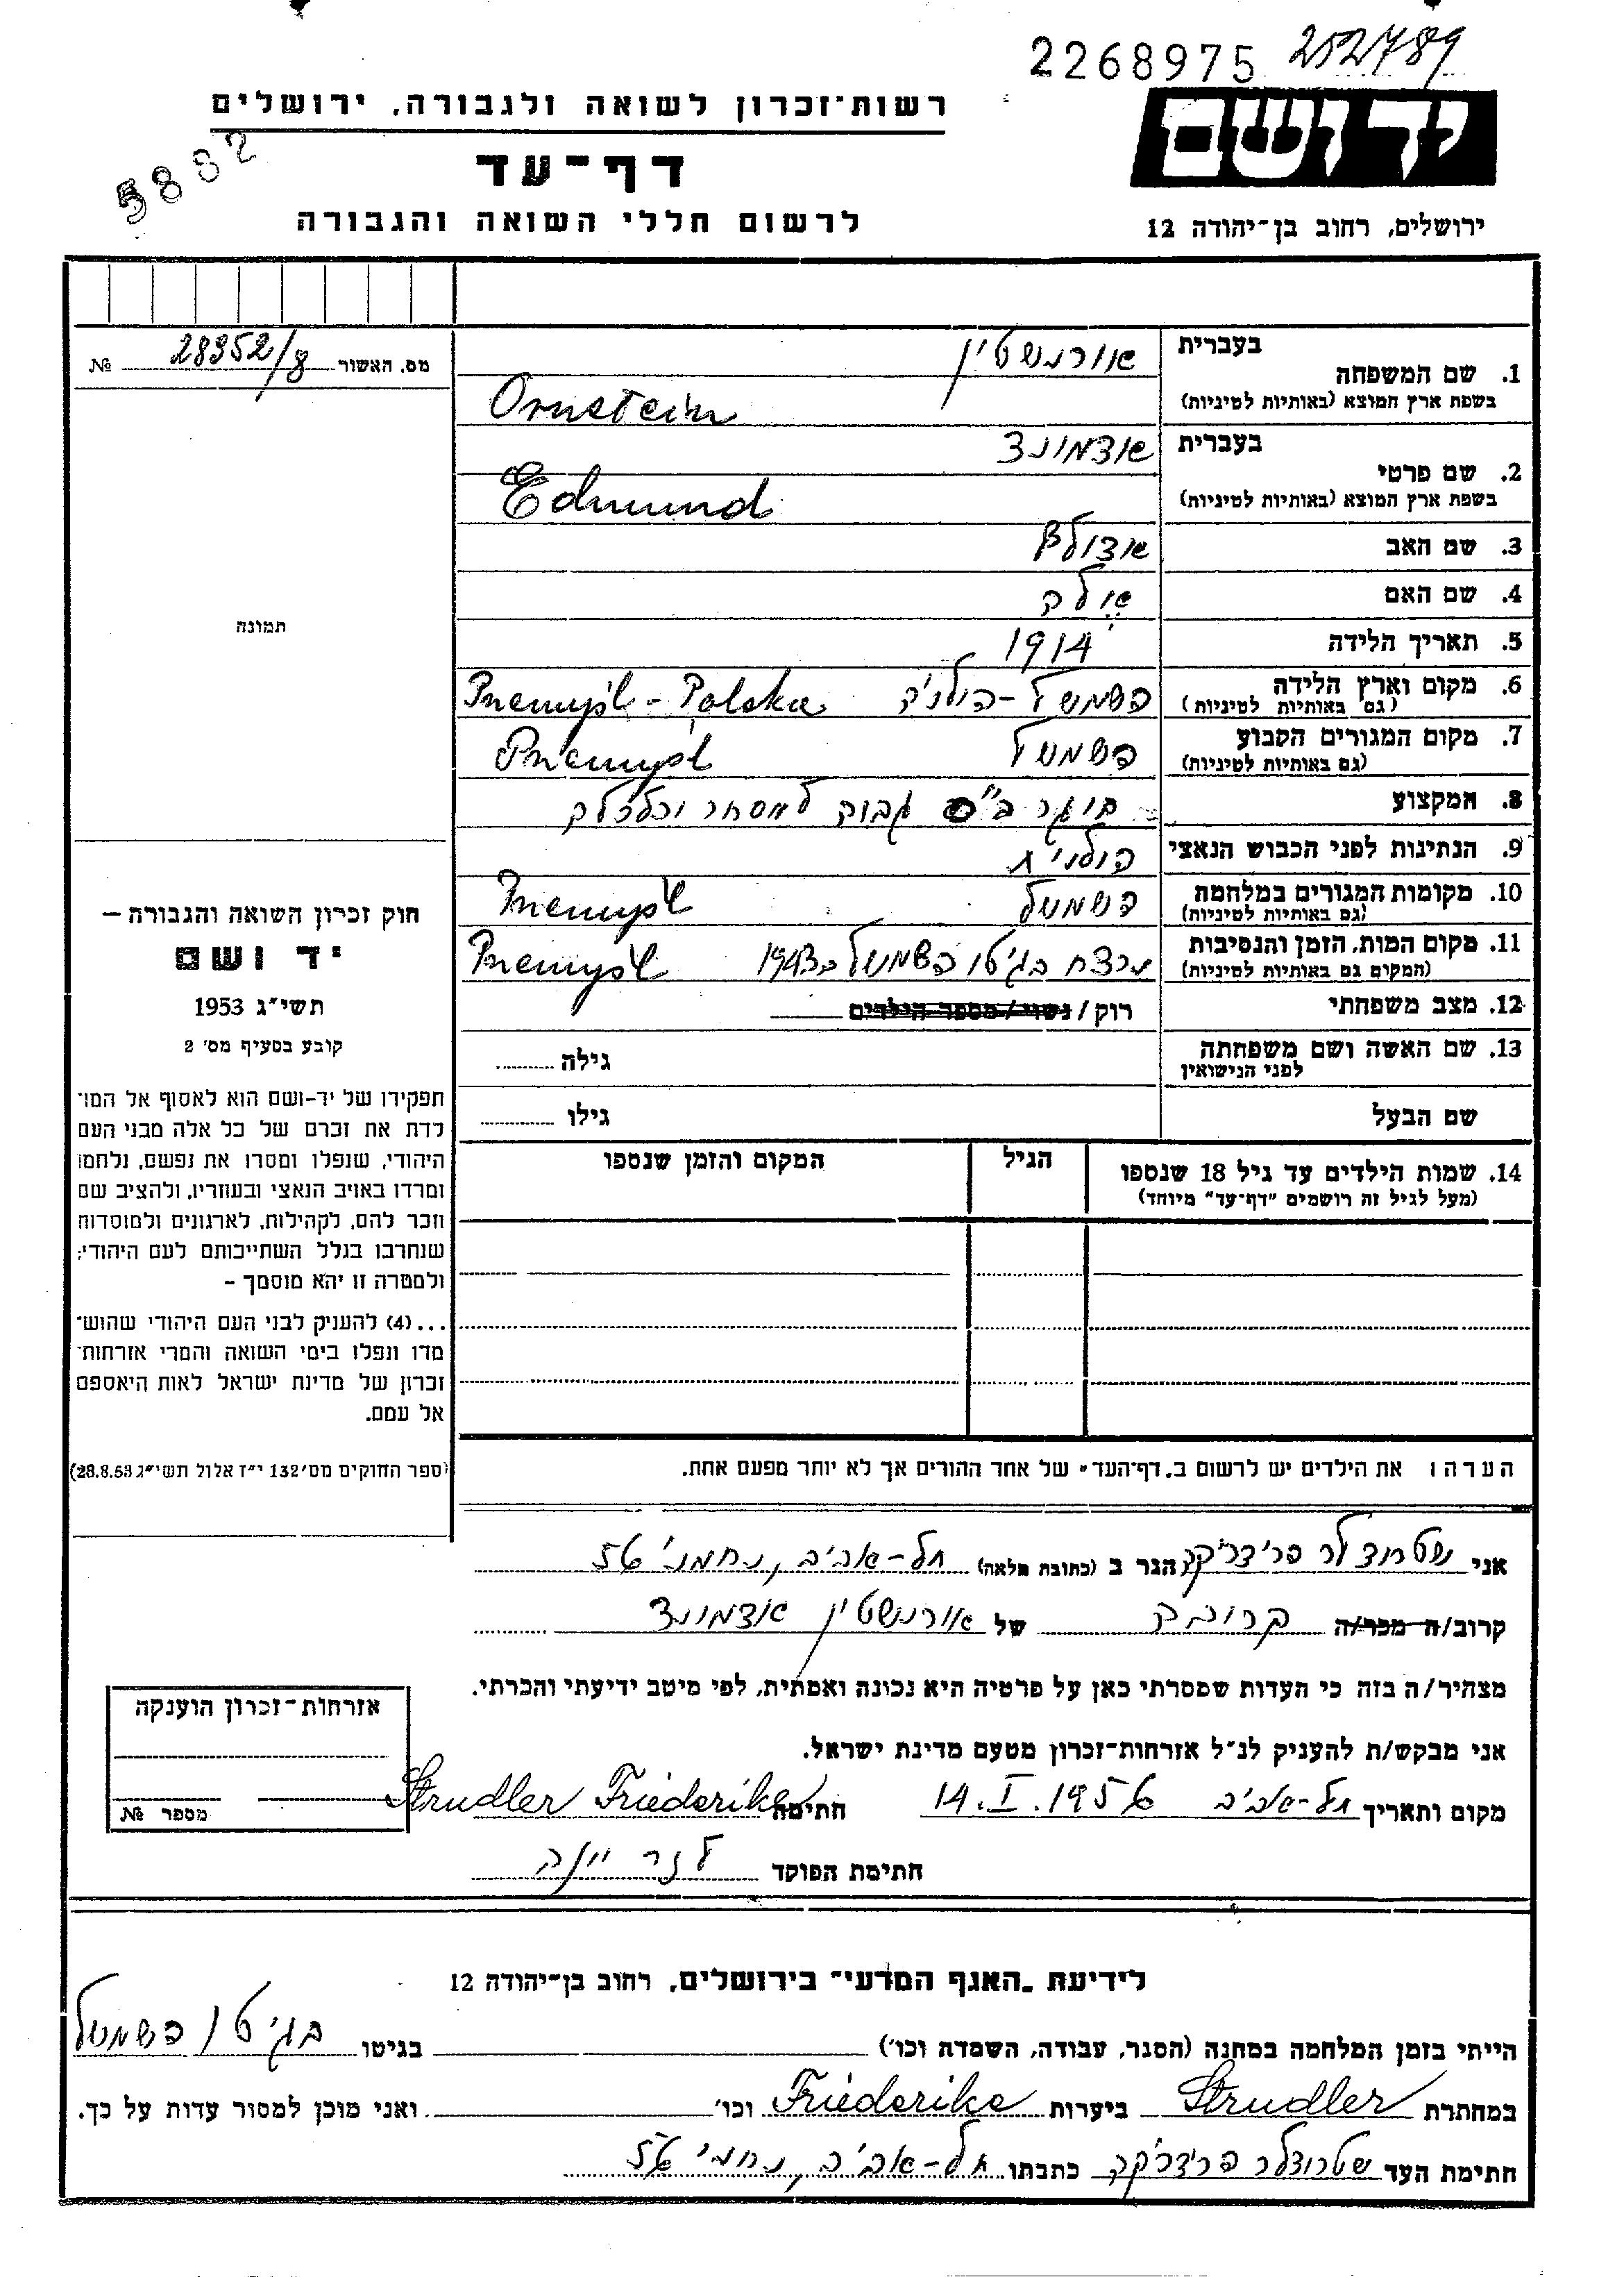 2268975 252789
יד ושם
רשות־זכרון לשואה ולגבורה, ירושלים
5882
דף־עד
ירושלים, רחוב בן־יהודה 12
לרשום חללי השואה והגבורה
מס. האשור 28352/8 №
תמונה
1. שם המשפחה
בעברית
אורנשטין
בשפת ארץ המוצא (באותיות לטיניות)
Ornstein
2. שם פרטי
בעברית
אדמונד
בשפת ארץ המוצא (באותיות לטיניות)
Edmund
3. שם האב אדולף
4. שם האם
5. תאריך הלידה 1914
6. מקום וארץ הלידה פשמשל - פולניה Przemyśl - Polska
(גם באותיות לטיניות)
7. מקום המגורים הקבוע פשמשל Przemyśl
(גם באותיות לטיניות)
8. המקצוע בוגר בי"ס גבוה למסחר וכלכלה
9. הנתינות לפני הכבוש הנאצי פולנית
10. מקומות המגורים במלחמה פשמשל Przemyśl
(גם באותיות לטיניות)
11. מקום המות, הזמן והנסיבות נרצח בגיטו פשמשל ב 1943 Przemyśl
(המקום גם באותיות לטיניות)
12. מצב משפחתי רוק / נשוי / מספר הילדים
13. שם האשה ושם משפחתה גילה
לפני הנישואין
שם הבעל גילו
14. שמות הילדים עד גיל 18 שנספו הגיל המקום והזמן שנספו
(מעל לגיל זה רושמים "דף־עד" מיוחד)
חוק זכרון השואה והגבורה –
יד ושם
תשי"ג 1953
קובע בסעיף מס' 2
תפקידו של יד-ושם הוא לאסוף אל המו־
לדת את זכרם של כל אלה מבני העם
היהודי, שנפלו ומסרו את נפשם, נלחמו
ומרדו באויב הנאצי ובעוזריו, ולהציב שם
וזכר להם, לקהילות, לארגונים ולמוסדות
שנחרבו בגלל השתייכותם לעם היהודי;
ולמטרה זו יהא מוסמך –
...(4) להעניק לבני העם היהודי שהוש־
מדו ונפלו בימי השואה והמרי אזרחות־
זכרון של מדינת ישראל לאות היאספם
אל עמם.
(ספר החוקים מס' 132 י"ז אלול תשי"ג 28.8.53)
הערה: את הילדים יש לרשום ב„דף־העד" של אחד ההורים אך לא יותר מפעם אחת.
אני שטרודלר פרידריקה הגר ב (כתובת מלאה) תל-אביב, נחמני 56
קרוב/ה מכר/ה קרובה של אורנשטין אדמונד
מצהיר/ה בזה כי העדות שמסרתי כאן על פרטיה היא נכונה ואמתית, לפי מיטב ידיעתי והכרתי.
אני מבקש/ת להעניק לנ"ל אזרחות־זכרון מטעם מדינת ישראל.
מקום ותאריך תל-אביב 14.I.1956 חתימה Strudler Friederike
חתימת הפוקד
אזרחות־זכרון הוענקה
מספר №
לידיעת „האגף המדעי" בירושלים, רחוב בן־יהודה 12
הייתי בזמן המלחמה במחנה (הסגר, עבודה, השמדה וכו') בגיטו בגיטו פשמשל
במחתרת Strudler ביערות Friederike וכו' ואני מוכן למסור עדות על כך.
חתימת העד שטרודלר פרידריקה כתבתו תל-אביב, נחמני 56